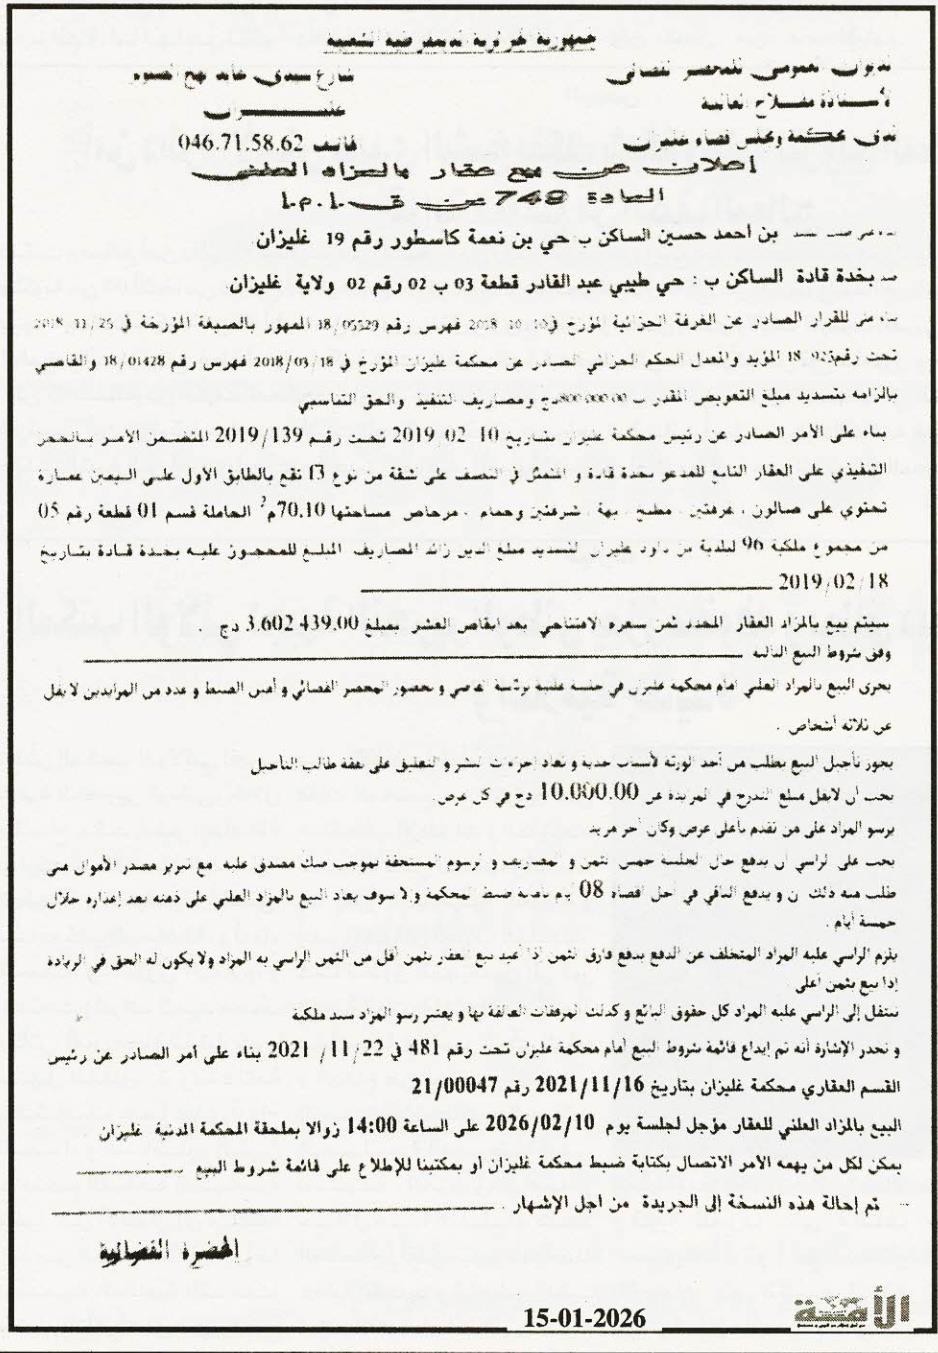 الديوان العمومي للمحضر القضائي
الأستاذة مفلاح العالية
لدى محكمة ومجلس قضاء غليزان
شارع سيدي عابد نهج الصومام
غليـــــزان
هاتف 046.71.58.62
إعلان عن بيع عقار بالمزاد العلني
المادة 749 من ق.إ.م.إ
بن أحمد حسين الساكن ب حي بن نعمة كاسطور رقم 19 غليزان
ضد بخدة قادة الساكن ب : حي طيبي عبد القادر قطعة 03 ب 02 رقم 02 ولاية غليزان
بناء على القرار الصادر عن الغرفة الجزائية المؤرخ في 10-10-2018 فهرس رقم 18/05529 الممهور بالصيغة المؤرخة في 2018/11/25
تحت رقم المؤيد والمعدل الحكم الجزائي الصادر عن محكمة غليزان المؤرخ في 2018/03/18 فهرس رقم 18/01428 والقاضي
بإلزامه بتسديد مبلغ التعويض المقدر ب 800.000.00دج ومصاريف التنفيذ والحق التناسبي
بناء على الأمر الصادر عن رئيس محكمة غليزان بتاريخ 10-02-2019 تحت رقم 2019/139 المتضمن الأمر بالحجز
التنفيذي على العقار التابع للمدعو بخدة قادة و المتمثل في النصف على شقة من نوع f3 تقع بالطابق الاول على اليمين عمارة
تحتوي على صالون ، غرفتين ، مطبخ ، بهو ، شرفتين وحمام ، مرحاض مساحتها 70.10م2 الحاملة قسم 01 قطعة رقم 05
من مجموع ملكية 96 لبلدية بن داود غليزان لتسديد مبلغ الدين زائد المصاريف المبلغ للمحجوز عليه بخدة قادة بتاريخ
2019/02/18
سيتم بيع بالمزاد العقار المحدد ثمن سعره الافتتاحي بعد إنقاص العشر بمبلغ 3.602 439.00 دج
وفق شروط البيع التالية
يجرى البيع بالمزاد العلني امام محكمة غليزان في جلسة علنية برئاسة القاضي و بحضور المحضر القضائي و أمين الضبط و عدد من المزايدين لا يقل
عن ثلاثة أشخاص .
يجوز تأجيل البيع بطلب من أحد الورثة لأسباب جدية و تعاد إجراءات النشر و التعليق على نفقة طالب التأجيل
يجب أن لايقل مبلغ التدرج في المزايدة عن 10.000.00 دج في كل عرض
يرسو المزاد على من تقدم بأعلى عرض وكان آخر مزيد
يجب على الراسي أن يدفع حال الجلسة خمس الثمن و المصاريف و الرسوم المستحقة بموجب صك مصدق عليه مع تبرير مصدر الأموال متى
طلب منه ذلك ن و يدفع الباقي في أجل أقصاه 08 أيام بأمانة ضبط المحكمة وإلا سوف يعاد البيع بالمزاد العلني على ذمته بعد إعذاره خلال
خمسة أيام .
يلزم الراسي عليه المزاد المتخلف عن الدفع بدفع فارق الثمن إذا أعيد بيع العقار بثمن أقل من الثمن الراسي به المزاد ولا يكون له الحق في الزيادة
إذا بيع بثمن أعلى .
تنتقل إلى الراسي عليه المزاد كل حقوق البائع و كذلك المرفقات العالقة بها و يعتبر رسو المزاد سند ملكية
و تجدر الإشارة أنه تم إيداع قائمة شروط البيع أمام محكمة غليزان تحت رقم 481 في 22/11/ 2021 بناء على أمر الصادر عن رئيس
القسم العقاري محكمة غليزان بتاريخ 2021/11/16 رقم 21/00047
البيع بالمزاد العلني للعقار مؤجل لجلسة يوم 2026/02/10 على الساعة 14:00 زوالا بملحقة المحكمة المدنية غليزان
يمكن لكل من يهمه الامر الاتصال بكتابة ضبط محكمة غليزان أو بمكتبنا للإطلاع على قائمة شروط البيع
تم إحالة هذه النسخة إلى الجريدة من اجل الإشهار .
المحضرة القضائية
15-01-2026
الأمة